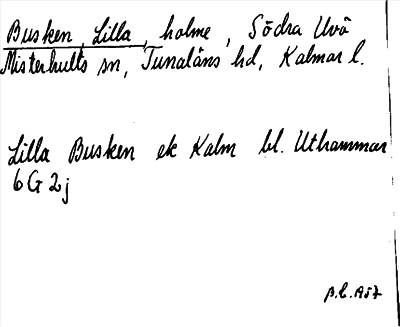 Busken, Lilla, holme, Södra Uvö
Misterhults sn, Tunaläns hd, Kalmar l.
Lilla Busken ek Kalm bl. Uthammar
6G 2j
B.L. 1957